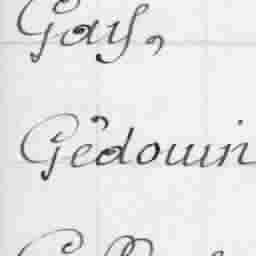 Gay,
Gédouin